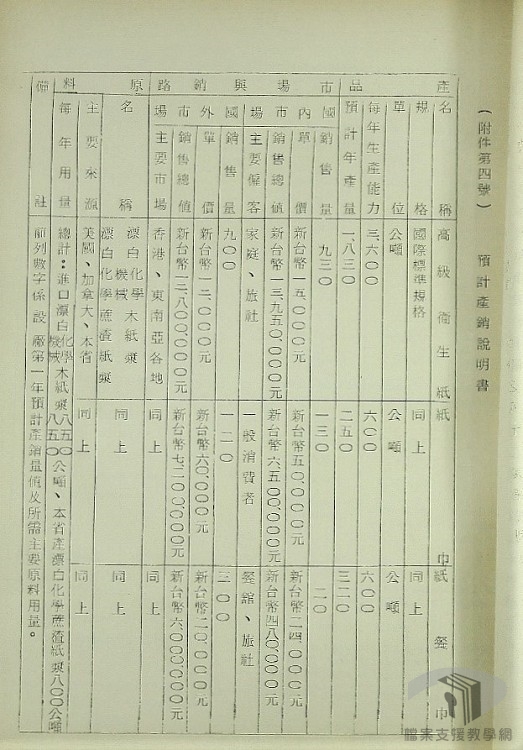 (附件第四號) 預計產銷說明書
產品 市場與銷路 原料 備註
名稱 高級衛生紙 紙巾 紙餐巾
規格 國際標準規格 同上 同上
單位 公噸 公噸 公噸
每年生產能力 三六〇〇 六〇〇 六〇〇
預計年產量 一、八三〇 二五〇 三二〇
國內市場 銷售量 九三〇 一三〇 二〇
單價 新台幣一五、〇〇〇元 新台幣五〇、〇〇〇元 新台幣二四、〇〇〇元
銷售總值 新台幣一三、九五〇、〇〇〇元 新台幣六、五〇〇、〇〇〇元 新台幣四八〇、〇〇〇元
主要僱客 家庭、旅社 一般消費者 餐館、旅社
國外市場 銷售量 九〇〇 一二〇 三〇〇
單價 新台幣一二、〇〇〇元 新台幣六〇、〇〇〇元 新台幣二〇、〇〇〇元
銷售總值 新台幣 八〇〇、〇〇〇元 新台幣七、二〇〇、〇〇〇元 新台幣六、〇〇〇、〇〇〇元
主要市場 香港、東南亞各地 同上 同上
名稱 漂白化學機械木紙漿 同上 同上
漂白化學蔗渣紙漿
主要來源 美國、加拿大、本省 同上 同上
每年用量 總計:進口漂白化學機械木紙漿八五〇 八五〇公噸、本省產漂白化學蔗渣紙漿八〇〇公噸
前列數字係設廠第一年預計產銷量值及所需主要原料用量。
檔案支援教學網